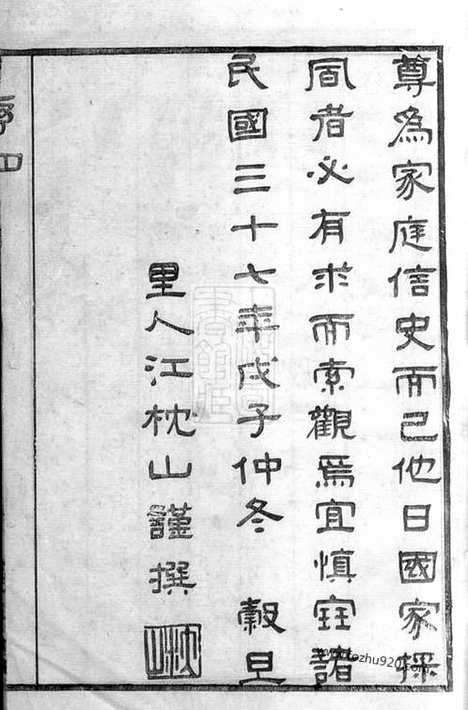 尊為家庭信史而已他日國家採
風者必有求而索觀焉宜慎寶諸
民國三十七年戊子仲冬　穀旦
里人江枕山謹撰
枕山
序四